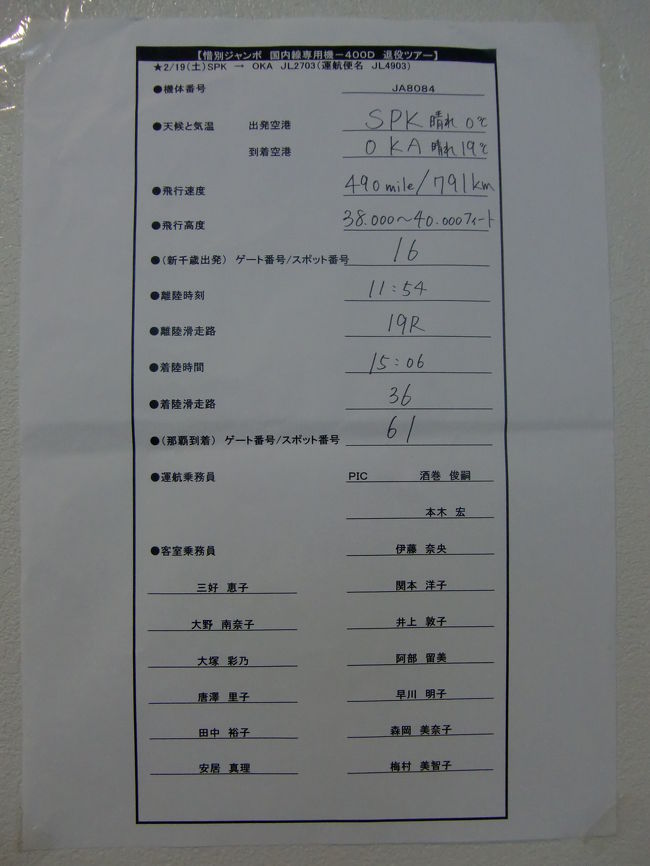 【惜別ジャンボ 国内線専用機－400D 退役ツアー】
★2/19(土)SPK → OKA JL2703(運航便名 JL4903)
●機体番号 JA8084
●天候と気温 出発空港 SPK 晴れ 0℃
到着空港 OKA 晴れ 19℃
●飛行速度 490mile/791km
●飛行高度 38.000～40.000フィート
●(新千歳出発) ゲート番号/スポット番号 16
●離陸時刻 11:54
●離陸滑走路 19R
●着陸時間 15:06
●着陸滑走路 36
●(那覇到着) ゲート番号/スポット番号 61
●運航乗務員 PIC 酒巻 俊嗣
本木 宏
●客室乗務員 伊藤 奈央
三好 恵子 関本 洋子
大野 南奈子 井上 敦子
大塚 彩乃 阿部 留美
唐澤 里子 早川 明子
田中 裕子 森岡 美奈子
安居 真理 梅村 美智子